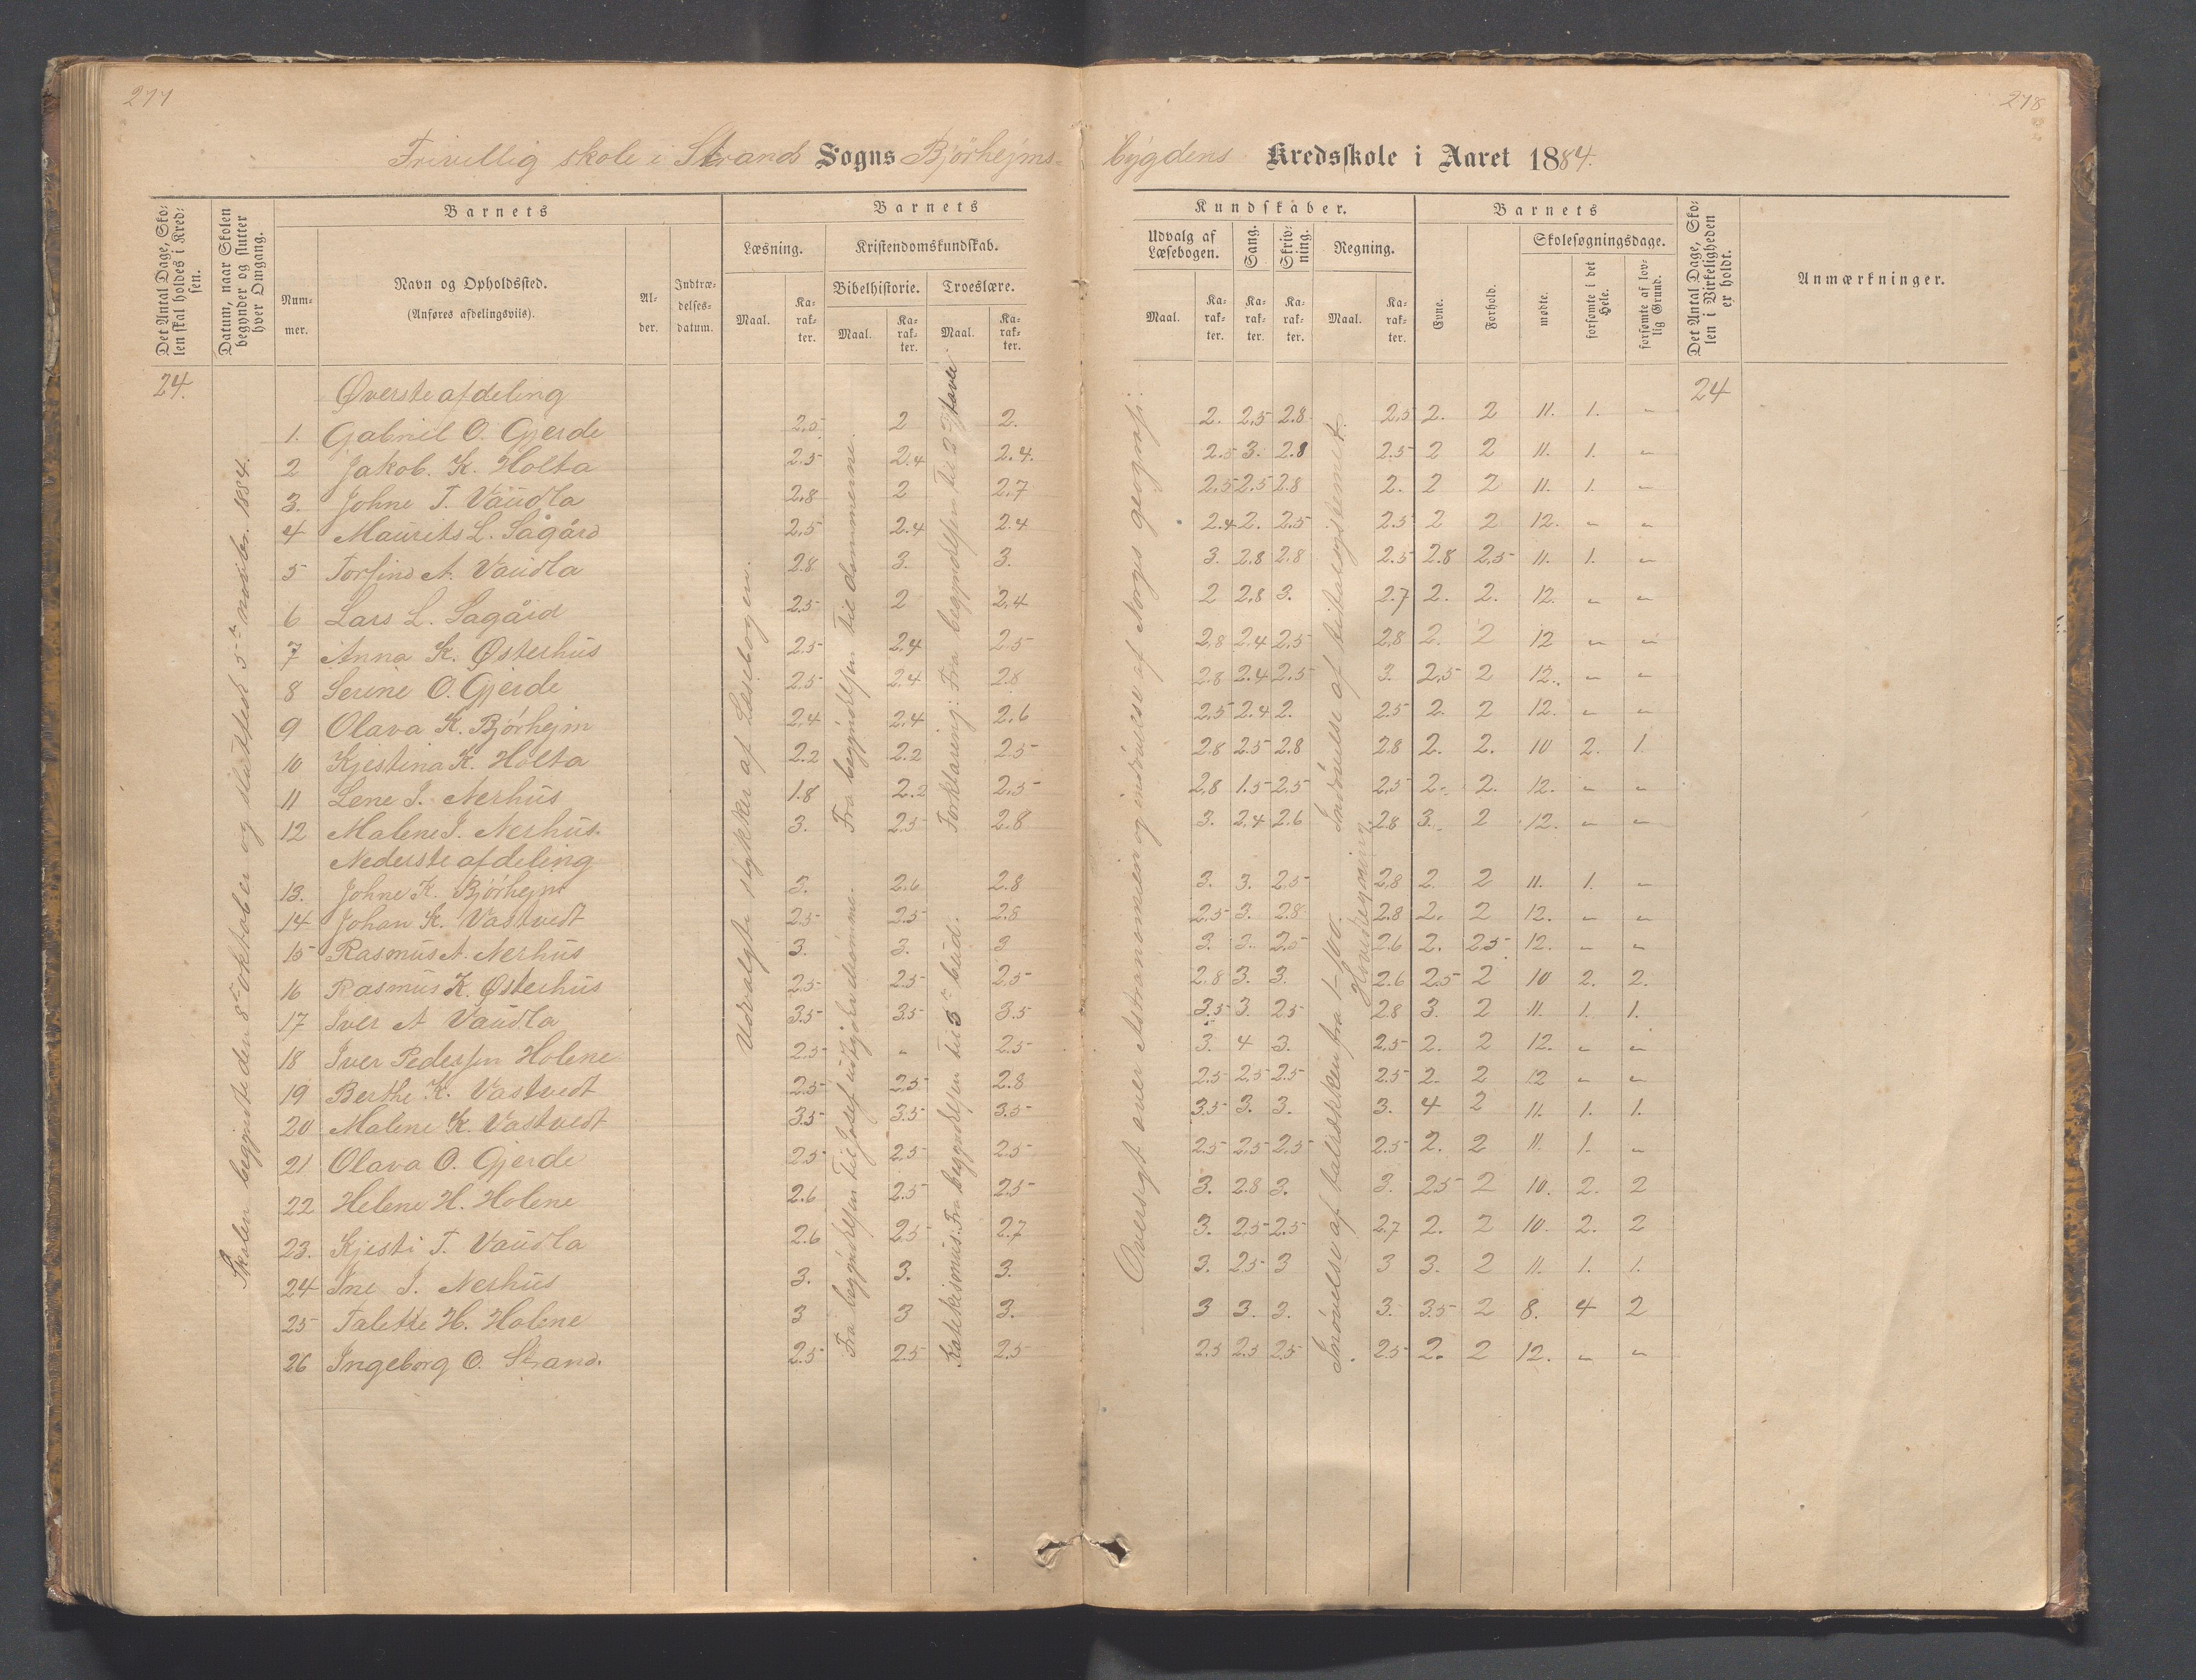 277
278
Frivillig skole i Strand Sogns Bjørhejms-
bygdens Kredsskole i Aaret 1884.
Det Antal Dage, Skolen skal holdes i Kredsen.
Datum, naar Skolen begynder og slutter hver Omgang.
Barnets
Nummer.
Navn og Opholdssted.
(Anføres afdelingsviis).
Alder.
Indtrædelsesdatum.
Barnets
Læsning.
Maal.
Karakter.
Kristendomskundskab.
Bibelhistorie.
Maal.
Karakter.
Troeslære.
Maal.
Karakter.
Kundskaber.
Udvalg af Læsebogen.
Maal.
Karakter.
Sang.
Karakter.
Skrivning.
Karakter.
Regning.
Maal.
Karakter.
Barnets
Evne.
Forhold.
Skolesøgningsdage.
mødte.
forsømte i det Hele.
forsømte af lovlig Grund.
Det Antal Dage, Skolen i Virkeligheden er holdt.
Anmærkninger.
24.
24
Skolen begyndte den 8de oktober og sluttedes 5te novbr. 1884.
Udvalgte stykker af Læsebogen.
Fra begyndelsen til dommerne.
Fra begyndelsen til Josef udtyder drømme.
Forklaring: Fra begyndelsen til 2den tavle.
Katekismus: Fra begyndelsen til 3de bud.
Oversigt over Astronomien og indøvelse af Norges geografi.
Indøvelse af titalsystemet.
Indøvelse af talrækken fra 1-100.
Hovedregning.
Øverste afdeling
1. Gabriel O. Gjerde 2,5 2 2. 2. 2,5 2.8 2,5 2. 2 11. 1. "
2 Jakob. K. Holta 2.5 2.4 2.4. 2.5 3. 2.8 2.5 2 2 11. 1. "
3. Johne T. Vaudla 2,8 2 2,7 2,5 2.5 2.8 2. 2 2 11. 1. "
4 Maurits L. Sagård 2,5 2.4 2.4 2.4 2. 2.5 2.5 2 2 12. " "
5 Torfind A. Vaudla 2.8 3. 3. 3. 2.8 2.8 2.5 2.8 2,5 11. 1. "
6 Lars L. Sagård 2.5 2 2,4 2 2,8 3. 2.7 2. 2. 12. " "
7 Anna K. Østerhus 2.5 2.4 2.5 2,8 2.4 2,5 2,8 2. 2 12 " "
8 Serine O. Gjerde 2.5 2.4 2.8 2.8 2.4 2.5 3. 2,5 2 12. " "
9 Olava K. Bjørhejm 2,4 2,4 2,6 2,5 2.4 2. 2.5 2. 2 12. " "
10 Kjestina K. Holta 2.2 2.2 2.5 2.8 2.5 2.8 2.8 2. 2. 10 2. 1.
11 Lene J. Nerhus 1.8 2.2 2,5 2,8 1.5 2.5 2,5 2. 2. 12. " "
12 Malene J. Nerhus. 3. 2.5 2.8 3. 2,4 2.6 2.8 3. 2 12. " "
Nederste afdeling
13. Johne K. Bjørhejm 3. 2.6 2.8 3. 3. 2.5 2,8 2. 2 11. 1. "
14 Johan K. Vastvedt 2.5 2.5 2.8 2.5 3. 2.8 2.8 2. 2 12. " "
15 Rasmus A. Nerhus 3. 3. 3 3. 3. 2.5 2.6 2. 2.5 12. " "
16 Rasmus K. Østerhus 2.5 2.5 2.5 2,8 3. 3. 2.6 2.5 2 10 2. 2.
17 Iver A Vaudla 3.5 3.5 3.5 3.5 3. 2.5 2.8 3. 2 11. 1. 1.
18 Iver Pedersen Holene 2.5 " 2.5 3. 4 3. 2,5 2. 2 12. " "
19 Berthe K. Vastvedt 2.5 2.5 2.8 2.5 2,5 2.5 2.5 2. 2 12 " "
20 Malene K. Vastvedt 3.5 3.5 3.5 3.5 3. 3. 3. 4 2 11. 1. 1.
21 Olava O. Gjerde 2.5 2.5 2.5 2.5 2.5 2.5 2.5 2. 2 11. 1. "
22 Helene H. Holene 2.6 2.5 2.5 3. 2.8 3. 3. 2.5 2 10. 2. 2
23. Kjesti T. Vaudla 2.6 2.5 2.7 3. 2.5 2.5 2.7 2. 2 10. 2. 2
24 Ine J. Nerhus 3. 3. 3. 3. 2.5 3 3 3. 2 11. 1. 1.
25 Talette H. Holene 3 3 3. 3 3. 3. 3. 3.5 2 8. 4 2
26 Ingeborg O. Strand. 2.5 2.5 2.5 2.5 2.5 2.5 2.5 2. 2 12. " "